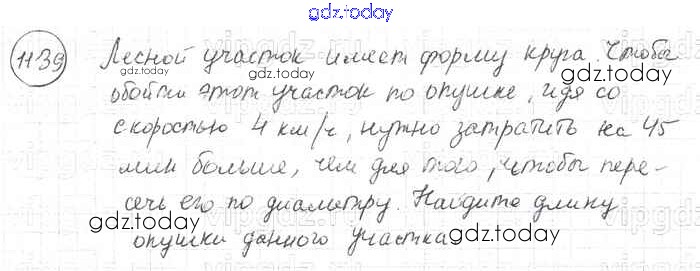 gdz.today
1139 Лесной участок имеет форму круга. Чтобы
gdz.today
gdz.today
обойти этот участок по опушке, идя со
скоростью 4 км/ч, нужно затратить на 45
gdz.today
gdz.today
мин больше, чем для того, чтобы пере-
сечь его по диаметру. Найдите длину
gdz.today
опушки данного участка
gdz.today